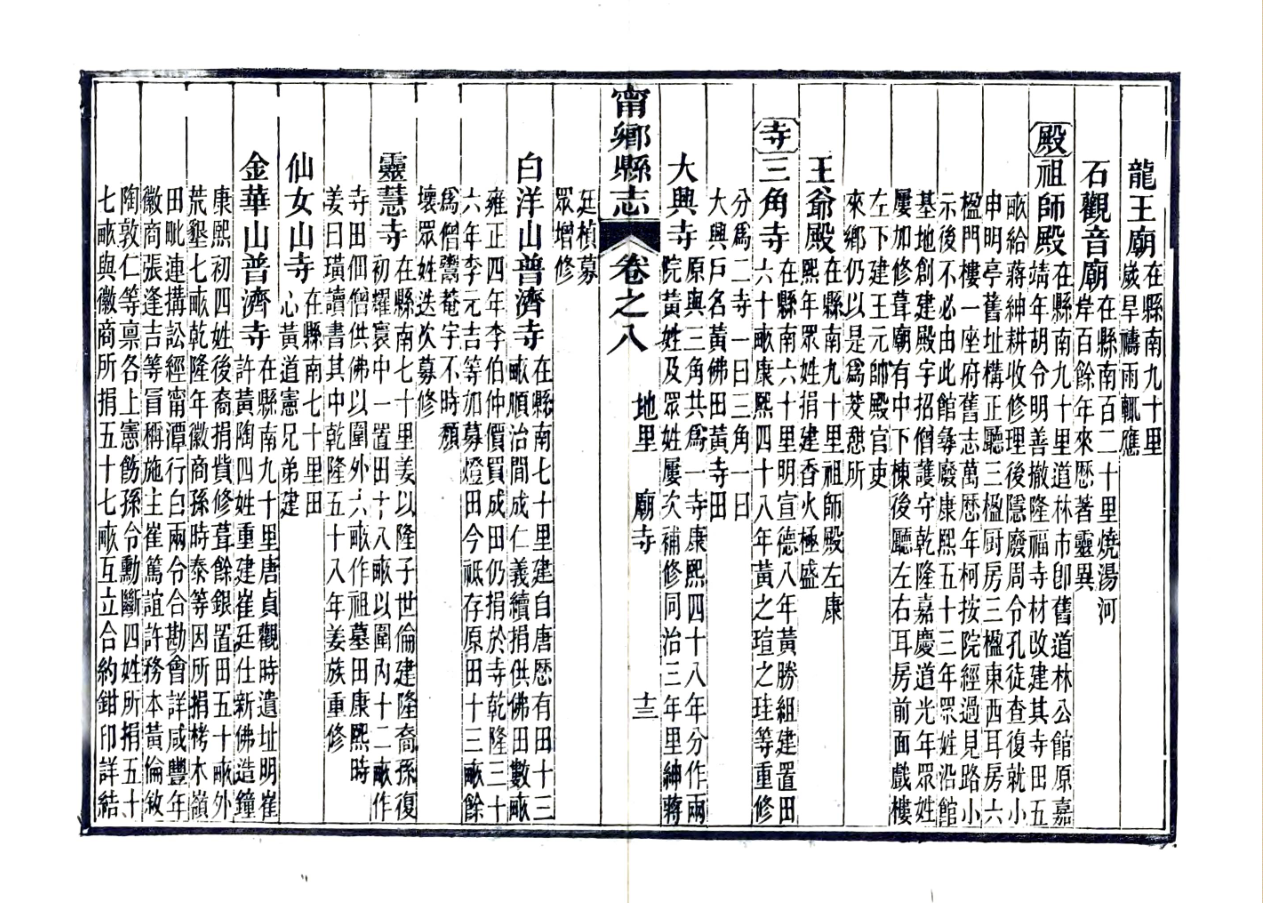 龍王廟在縣南九十里
歲旱禱雨輒應
石觀音廟在縣南百二十里燒湯河
岸百餘年來歷著靈異
殿
祖師殿在縣南九十里道林市卽舊道林公館原嘉
靖年胡令明善撤隆福寺材改建其寺田五
畝給蔣紳耕收修理後隱廢周令孔徒查復蓻小
申明亭舊址構正聽三楹厨房三楹東西耳房六
楹門樓一座府舊志萬歷年柯按院經過見路小
示後不必由此館彝廢康熙五十三年眾姓沿館
基地創建殿宇招僧護守乾隆嘉慶道光年眾姓
屢加修葺廟有中下棟後廳左右耳房前面戲樓
左下建王元帥殿官吏
來鄉仍以是爲茇憇所
王爺殿在縣南九十里祖師殿左康
熙年眾姓捐建香火極盛
寺
三角寺在縣南六十里明宣德八年黃勝組建置田
六十畝康熙四十八年黃之瑄之珪等重修
分爲二寺一曰三角一曰
大興戶名黃佛田黃寺田
大興寺原與三角共爲一寺康熙四十八年分作兩
院黃姓及眾姓屢次補修同治三年里紳蔣
甯鄉縣志
卷之八
地里
廟寺
十三
廷楨募
眾增修
白洋山普濟寺在縣南七十里建自唐歷有田十三
畝順治間成仁義續捐供佛田數畝
雍正四年李伯仲價買成田仍捐於寺乾隆三十
六年李元吉等加募燈田今祗存原田十三畝餘
爲僧鬻菴宇不時頽
壞眾姓迭次募修
靈慧寺在縣南七十里姜以隆子世倫建隆裔孫復
初耀寰中一置田十八畝以圍內十二畝作
寺田佃僧供佛以圍外六畝作祖墓田康熙時
姜曰璜讀書其中乾隆五十八年姜族重修
仙女山寺在縣南七十里田
心黃道憲兄弟建
金華山普濟寺在縣南九十里唐貞觀時遺址明崔
許黃陶四姓重建崔廷仕新佛造鐘
康熙初四姓後裔捐貲修葺餘銀置田五十畝外
荒墾七畝乾隆年徽商孫時泰等因所捐栲木嶺
田毗連搆訟經甯潭行白兩令合勘會詳咸豐年
徽商張逢吉等冒稱施主崔篤誼許務本黃倫敘
陶敦仁等禀各上憲飭孫令勳斷四姓所捐五十
七畝與徽商所捐五十七畝互立合約鉗印詳結